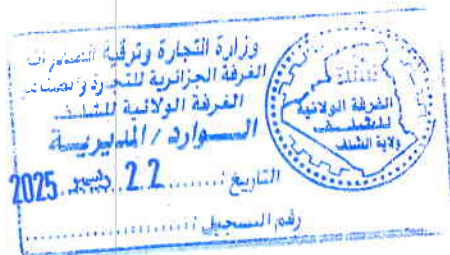 وزارة التجارة وترقية الصادرات
الغرفة الجزائرية للتجارة والصناعة
الغرفة الولائية للشلف
الـــوارد / المديريـــة
التاريخ : ........ 22 ديسمبر 2025
رقم التسجيل : ....................
الغرفة الولائية
للشلف
ولاية الشلف